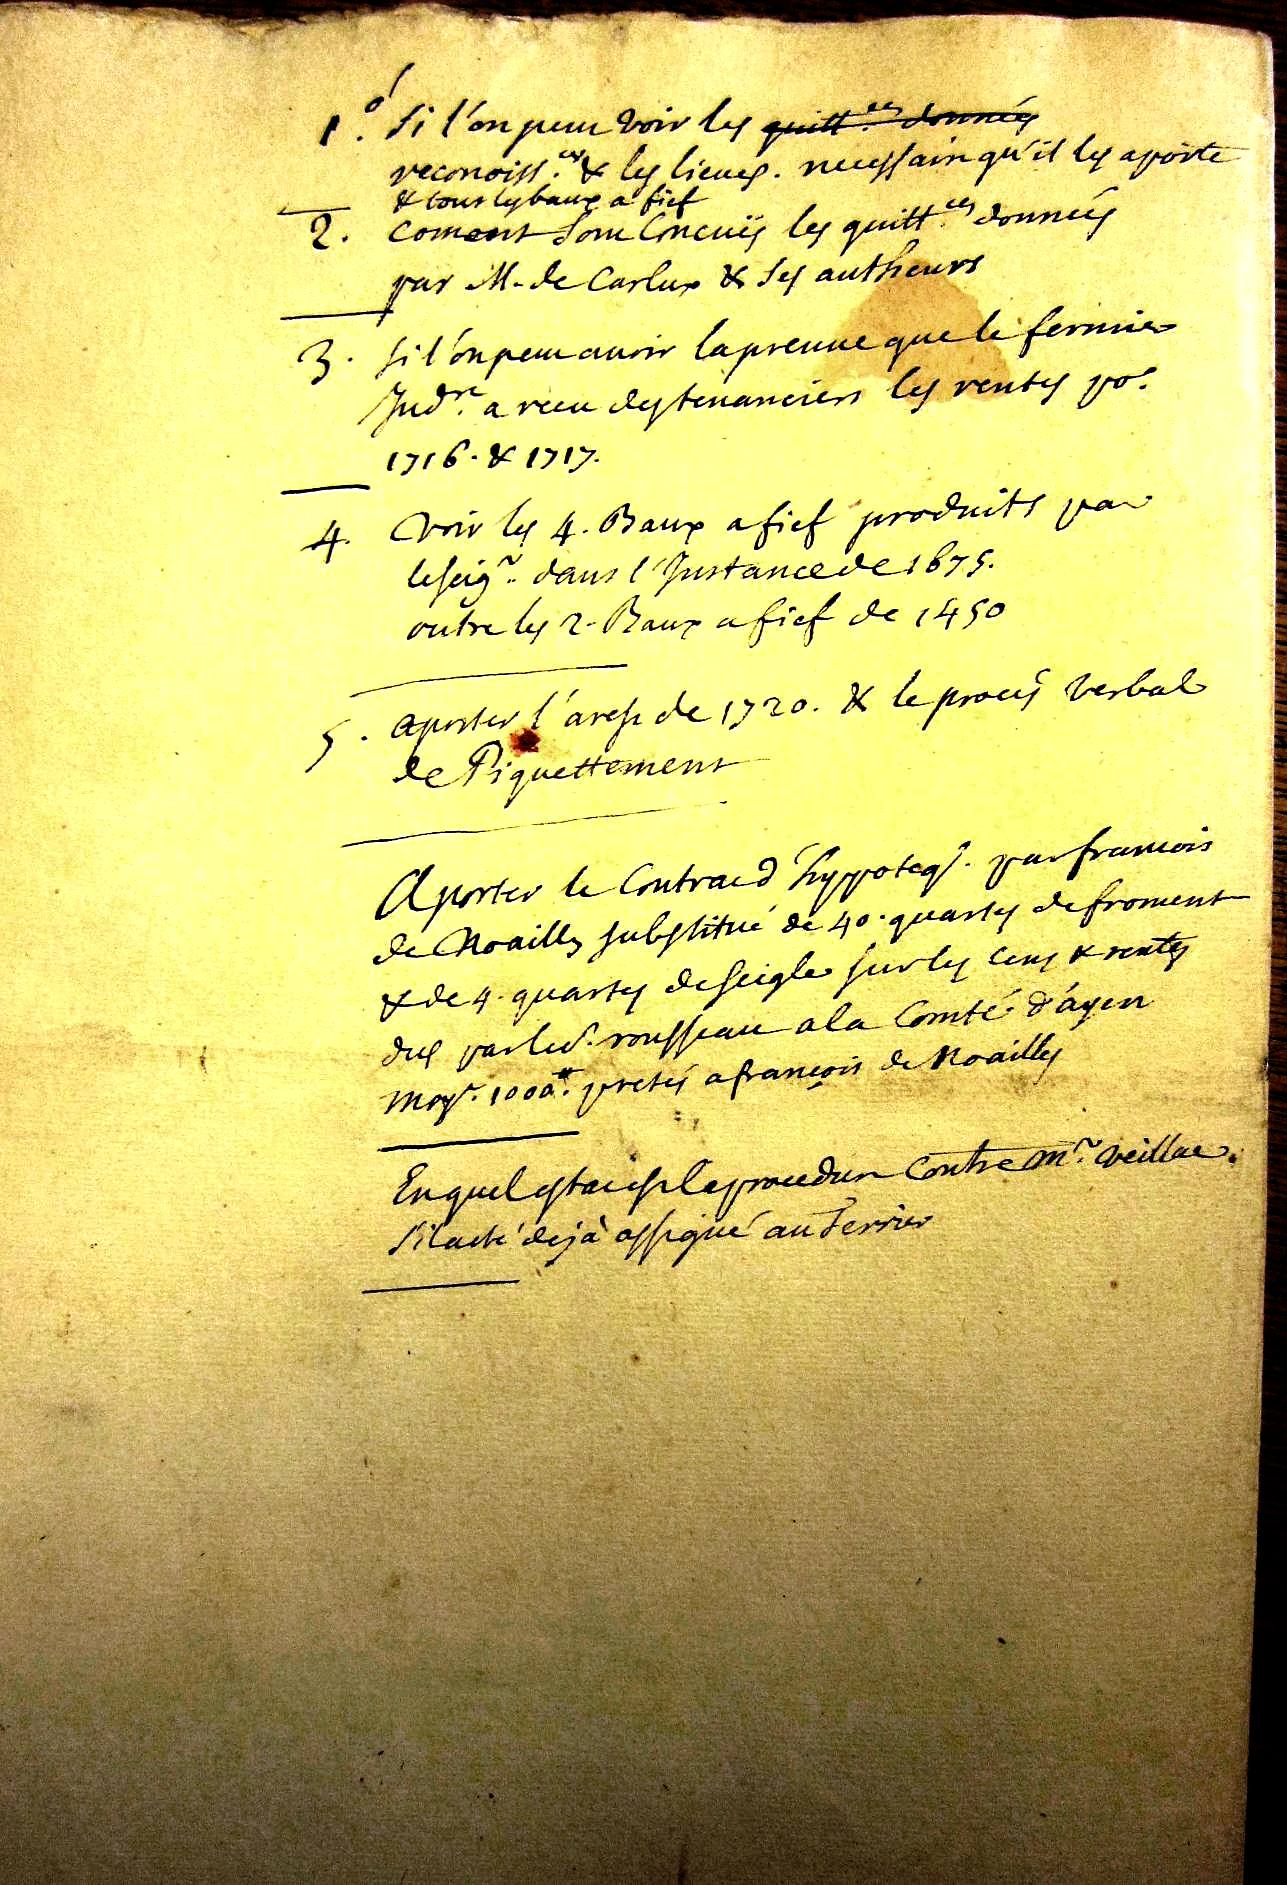 1.° Si l'on peut voir les quitt.ces données
reconoiss.ces & les lieves. necessaire qu'il les aporte
& tous les baux a fief
2. coment sont Concües les quitt.ces données
par M. de Carlux & ses autheurs
3. si l'on peut avoir la preuve que le fermier
Judre. a receu des tenanciers les rentes po.r
1716. & 1717.
4. Voir les 4. Baux a fief produits par
le seigr. dans l'Instance de 1675.
outre les 2. Baux a fief de 1450
5. aporter l'arest de 1720. & le procés verbal
de Piquettement
Aporter le Contract d'hypoteq. par francois
de Noailles substitué de 40. quartes de froment
& de 4. quartes de seigle sur les Cens & rentes
dus par led. rousseau a la Comté d'ayen
moy. 1000.# pretés a françois de Noailles
En quel estat est la procedure Contre Mr. Veillac.
s'il a eté dejà assigné au Terrier